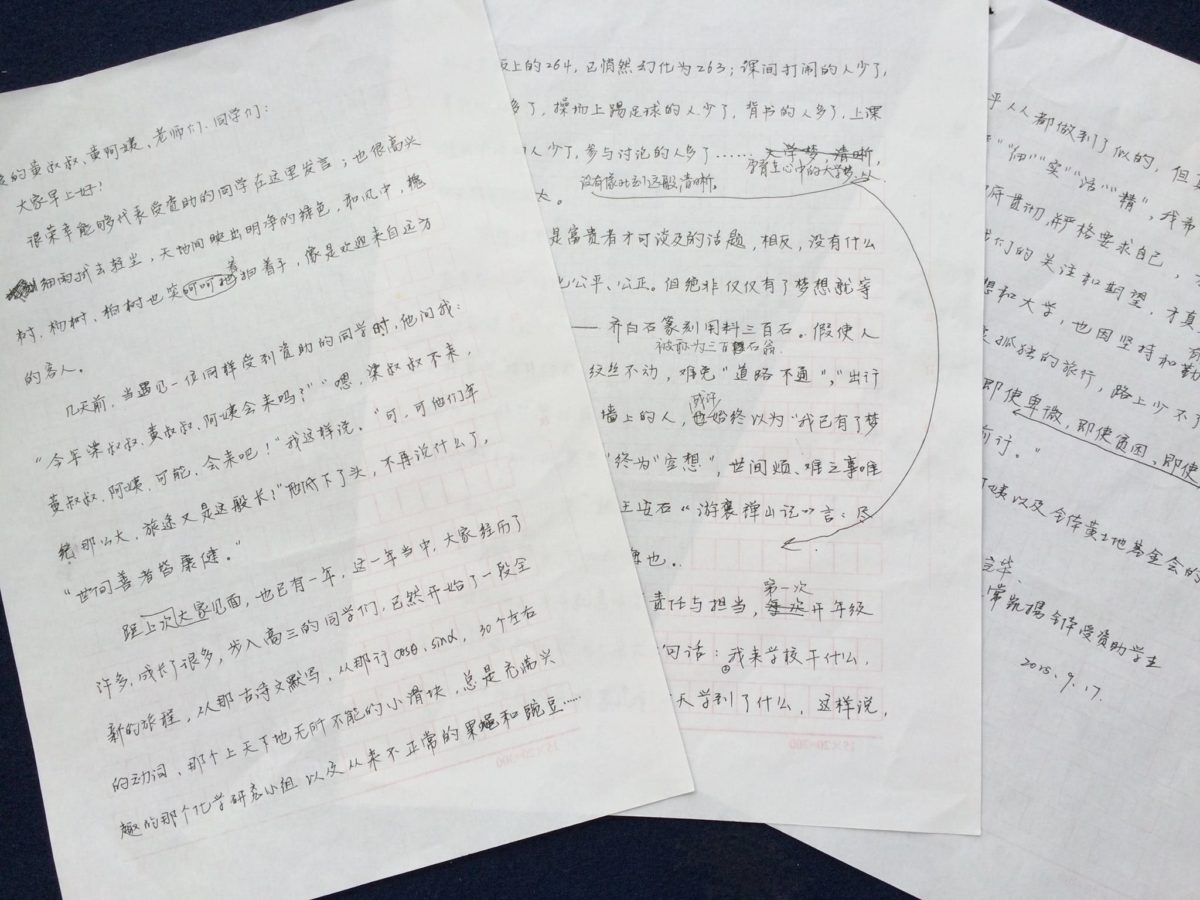 的黄叔叔、黄阿姨、老师们、同学们:
大家早上好!
很荣幸能够代表受资助的同学在这里发言;也很高兴
细雨拭去轻尘,天地间映出明净的绿色,和风中,槐
树、杨树、柏树也笑呵呵地拍着手,像是欢迎来自远方
着
的客人。
几天前,当遇见一位同样受到资助的同学时,他问我:
“今年梁叔叔、黄叔叔、阿姨会来吗?”“嗯,梁叔叔不来,
黄叔叔、阿姨、可能、会来吧!”我这样说。“可,可他们年
纪那么大,旅途又是这般长!”他低下了头,不再说什么了,
“世间善者皆康健。”
距上次大家见面,也已有一年,这一年当中,大家经历了
许多,成长了很多,步入高三的同学们,已然开始了一段全
新的旅程,从那古诗文默写,从那讨cosθ、sinα,30个左右
的动词、那个上天下地无所不能的小滑块,总是充满兴
趣的那个化学研究小组以及从来不正常的果蝇和豌豆……
上的264,已悄然幻化为263;课间打闹的人少了,
多了,操场上踢足球的人少了,背书的人多了,上课
人少了,参与讨论的人多了……大学梦,清晰,
没有像此刻这般清晰。
心中的大学梦,从
大。
是富贵者才可谈及的话题,相反,没有什么
公平、公正。但绝非仅仅有了梦想就等
——齐白石篆刻用料三百石。假使人
被称为三百石翁。
纹丝不动,难免“道路不通”,“出行
或许
墙上的人,也始终以为“我已有了梦
终为“空想”,世间烦、难之事唯
王安石《游褒禅山记》言:尽
悔也。
第一次
责任与担当,每次开年级
句话:我来学校干什么,
天学到了什么,这样说,
乎人人都做到了似的,但真
”“细”“实”“活”“精”,我希
贯彻,并严格要求自己,
我们的关注和期望,才真
想和大学,也因坚持和勤
孤独的旅行,路上少不了
即使卑微,即使贫困、即使
前行。”
姨以及全体黄土地基金会的
全体受资助学生
2015.9.17.
15×20=300
15×20=300